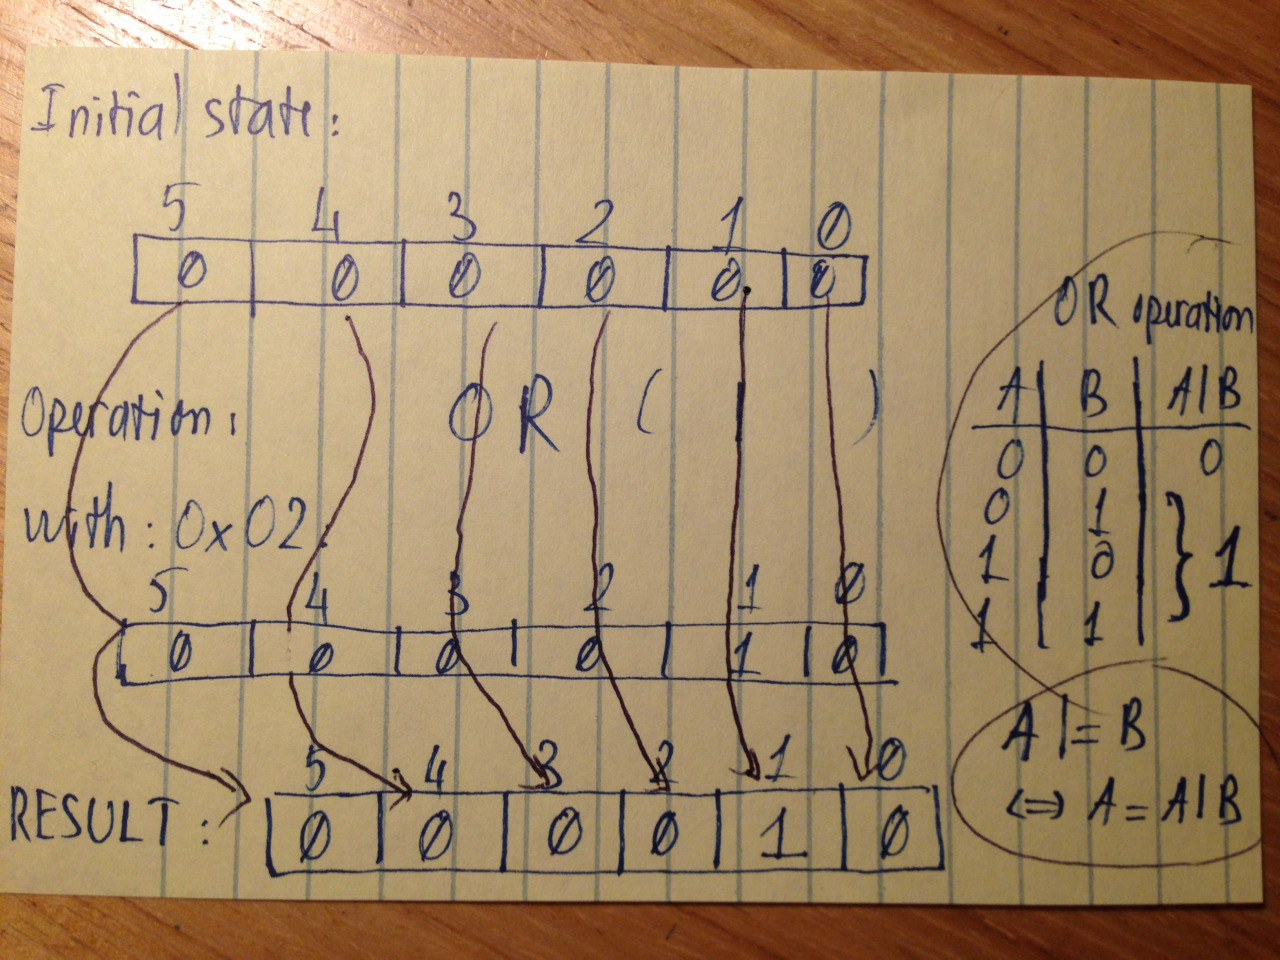 Initial state:
5 4 3 2 1 0
0 0 0 0 0 0
Operation: OR ( | )
with: 0x02
5 4 3 2 1 0
0 0 0 0 1 0
5 4 3 2 1 0
RESULT: 0 0 0 0 1 0
OR operation
A B A|B
0 0 0
0 1
1 0 } 1
1 1
A |= B
<=> A = A|B